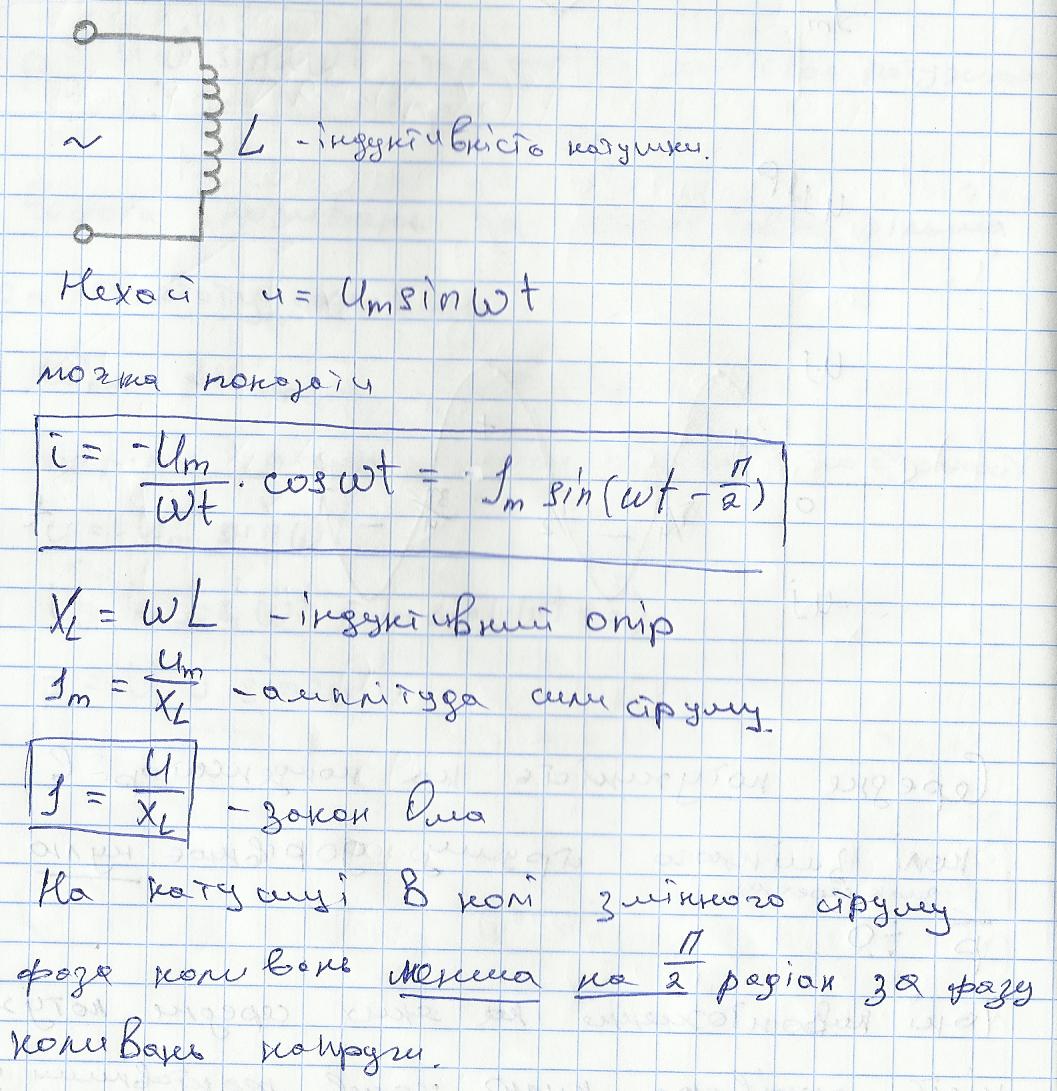 ~ L - індуктивність котушки.
Нехай u = Uₘ sin ωt
можна показати
i = -Uₘ/ωt · cos ωt = Iₘ sin(ωt - π/2)
X_L = ωL - індуктивний опір
Iₘ = Uₘ/X_L - амплітуда сили струму
I = U/X_L - закон Ома
На котушці в колі змінного струму
фаза коливань менша на π/2 радіан за фазу
коливань напруги.